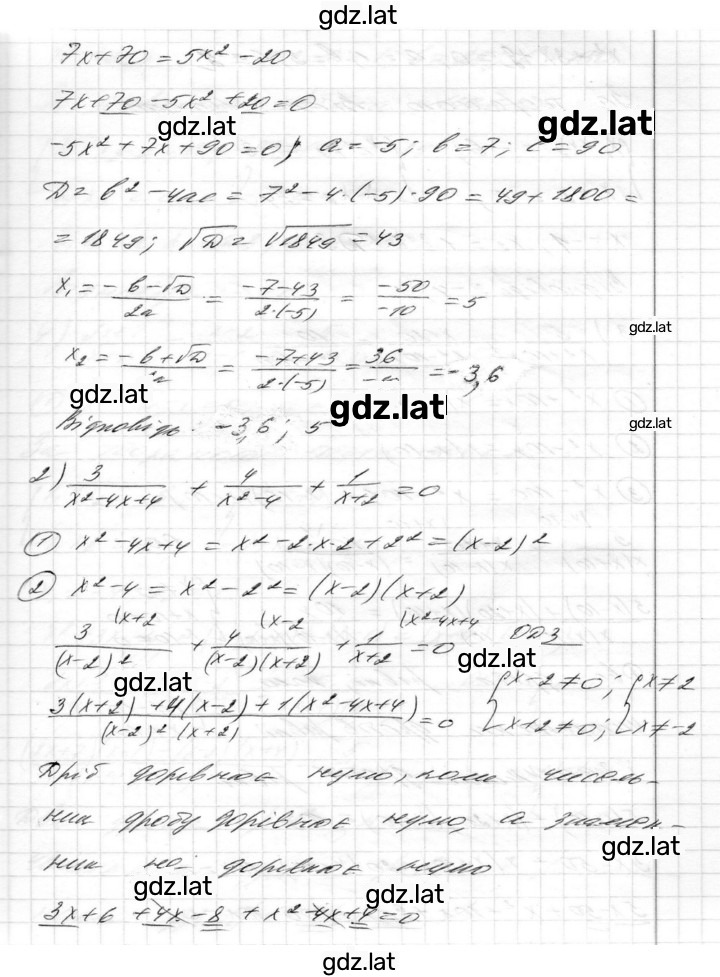 gdz.lat
7x+70=5x²-20
7x+70-5x²+20=0
gdz.lat
gdz.lat
-5x²+7x+90=0; a=-5; b=7; c=90
D=b²-4ac=7²-4·(-5)·90=49+1800=
=1849; √D=√1849=43
x₁=(-b-√D)/2a=(-7-43)/(2·(-5))=(-50)/(-10)=5
gdz.lat
x₂=(-b+√D)/2a=(-7+43)/(2·(-5))=36/(-10)=-3,6
gdz.lat
gdz.lat
gdz.lat
Відповідь: -3,6; 5
2) 3/(x²-4x+4) + 4/(x²-4) + 1/(x+2) =0
① x²-4x+4=x²-2·x·2+2²=(x-2)²
② x²-4=x²-2²=(x-2)(x+2)
(x+2 (x-2 (x²-4x+4
3/(x-2)² + 4/((x-2)(x+2)) + 1/(x+2) =0 ОДЗ
gdz.lat
gdz.lat
(3(x+2)+4(x-2)+1(x²-4x+4))/((x-2)²(x+2))=0 {x-2≠0; x+2≠0; {x≠2 x≠-2
Дріб дорівнює нулю, коли чисель-
ник дробу дорівнює нулю, а знамен-
gdz.lat
ник не дорівнює нулю
gdz.lat
gdz.lat
3x+6+4x-8+x²-4x+4=0
gdz.lat